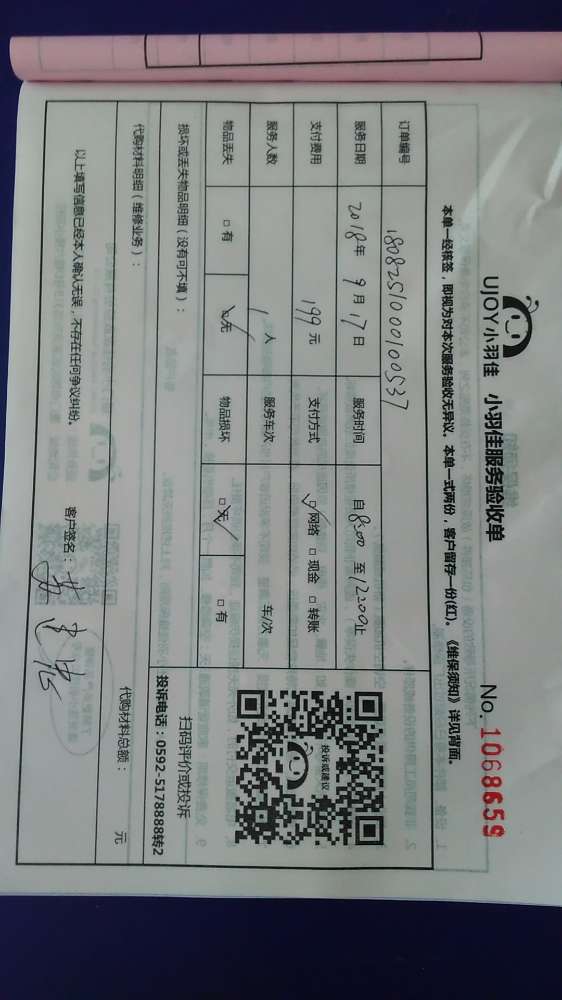 UJOY小羽佳 小羽佳服务验收单
No. 1068659
本单一经核签,即视为对本次服务验收无异议。本单一式两份,客户留存一份(红)。《维保须知》详见背面。
订单编号 180825100100537
服务日期 2018年9月17日 服务时间 自8:00至12:00止
支付费用 199元 支付方式 ☑网络 □现金 □转账
服务人数 1人 服务车次 车/次
物品丢失 □有 ☑无 物品损坏 ☑无 □有
投诉或建议
扫码评价或投诉
投诉电话:0592-5178888转2
损坏或丢失物品明细(没有可不填):
代购材料明细(维修业务): 代购材料总额: 元
以上填写信息已经本人确认无误,不存在任何争议纠纷。 客户签名: